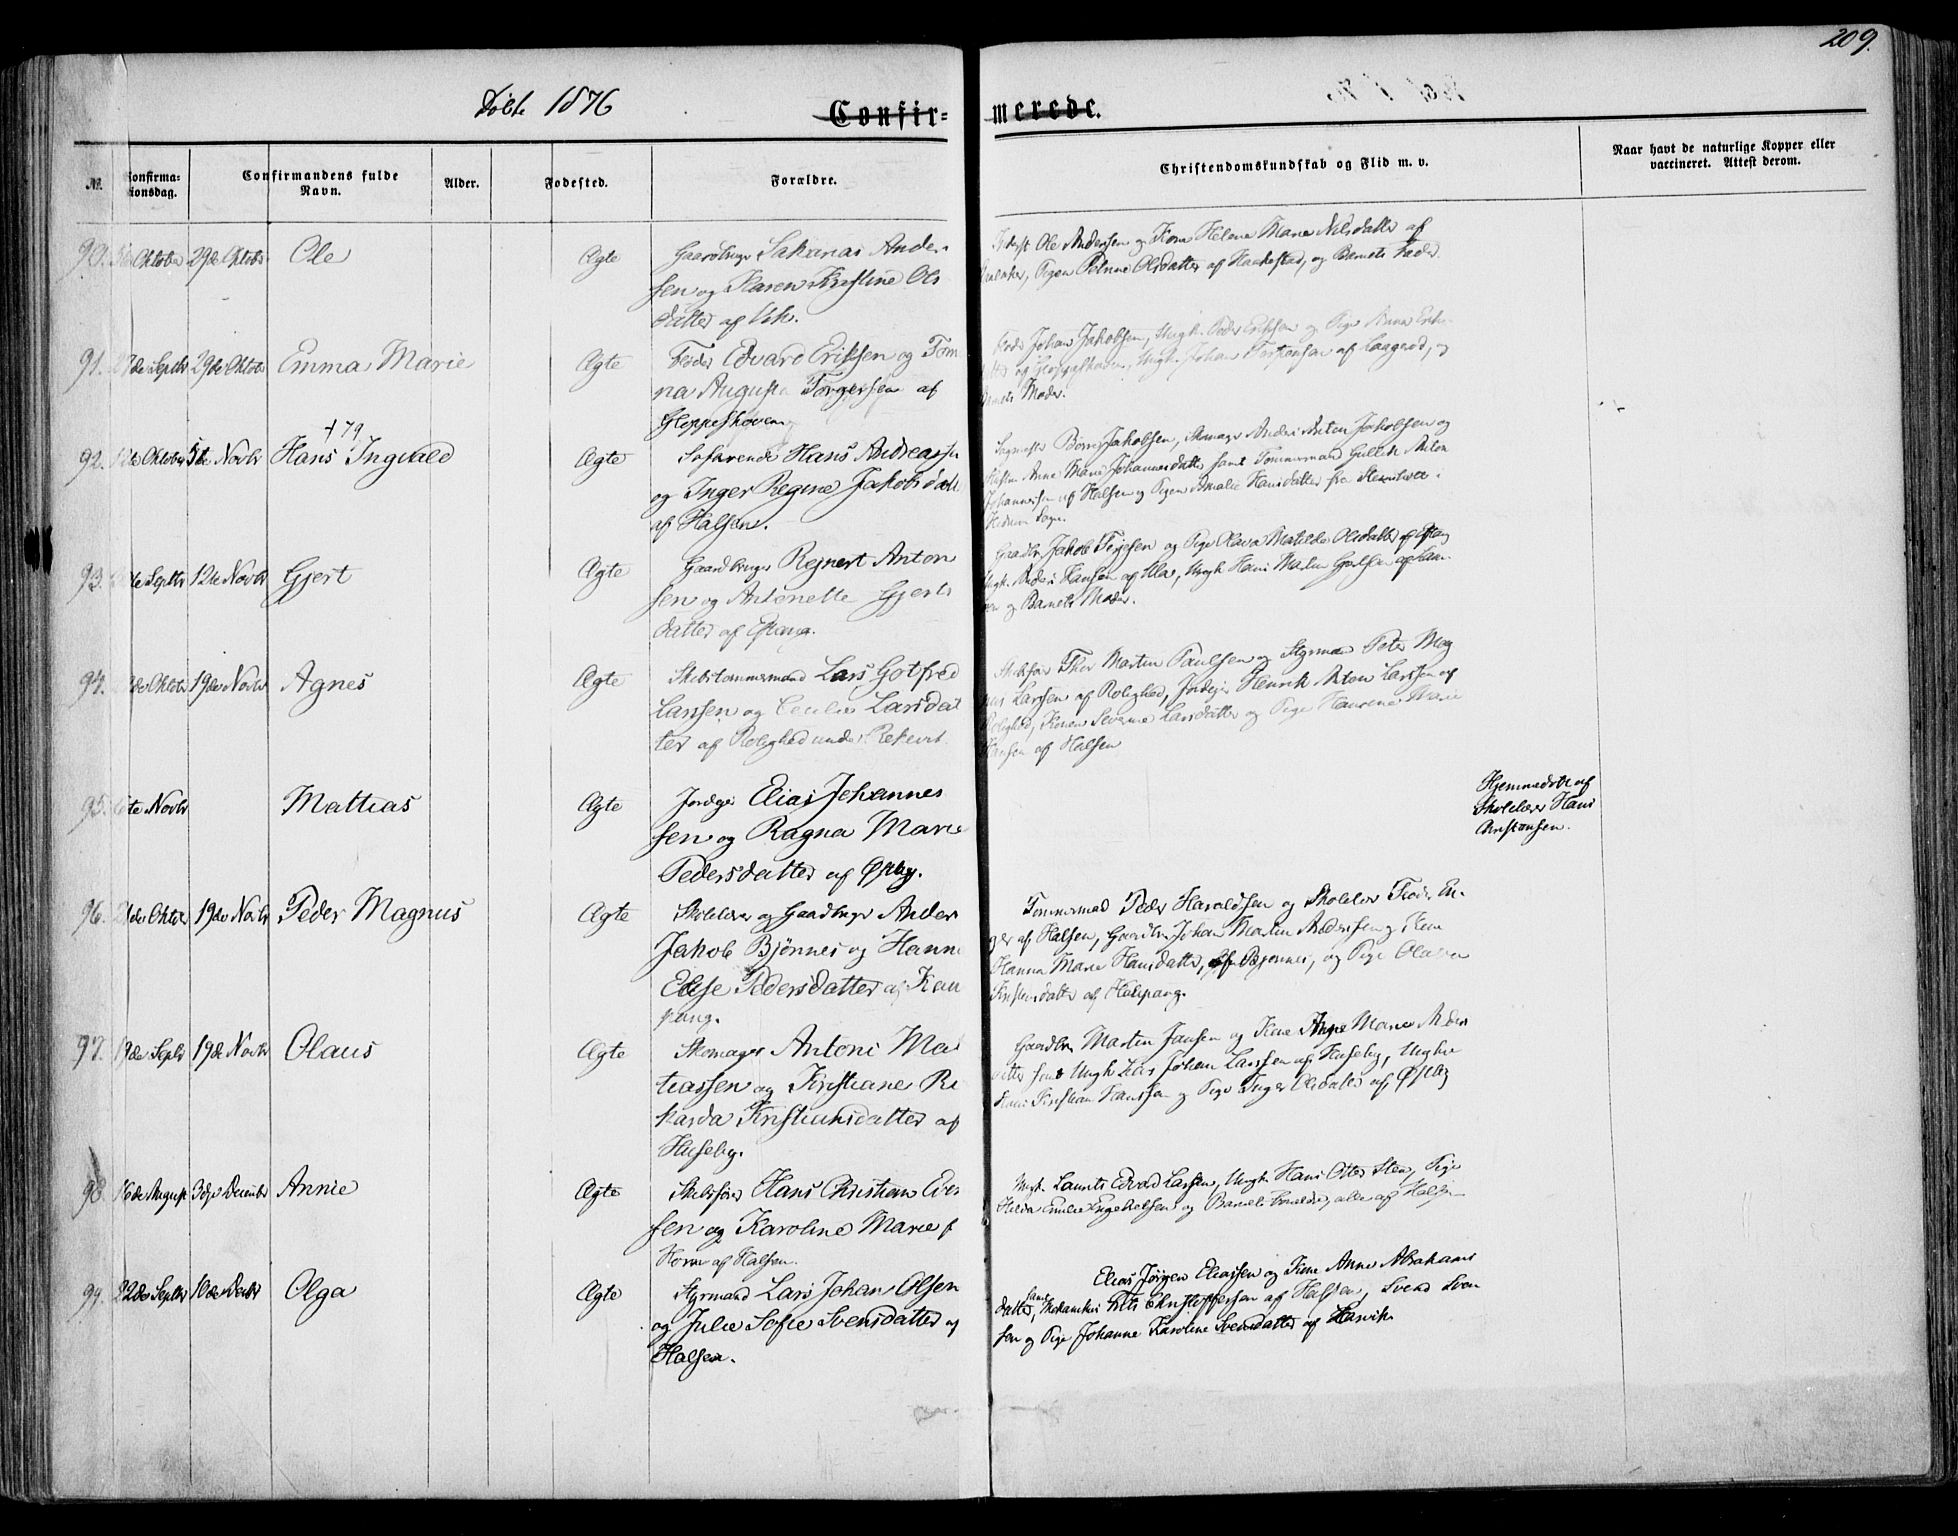 209.
Døbte 1876
Confir-
merede.
Nr.
Confirma-
tionsdag.
Confirmandens fulde
Navn.
Alder.
Fødested.
Forældre.
Christendomskundskab og Flid m. v.
Naar havt de naturlige Kopper eller
vaccineret. Attest derom.
90. Oktober 29de Oktobr Ole Ægte Gaardbruger Sakarias Ander-
sen og Karen Kristine Ols
datter af Vik.
Ole Andersen og Kone Helene Marie Nilsdatter af
Pigen Petrine Olsdatter af Haakestad, og Barnets Fader
91. 17de Septbr 29de Oktobr Emma Marie Ægte Føder Edvard Eriksen og Tom
na Augusta Torgersen af
Gloppeskoven
Johan Jakobsen, Ungk. Peder Eriksen og Pige Anna Erik-
og Gloppeskoven, Ungk. Johan af Laagerød, og
Barnets Moder.
92. 12te Oktober 5te Novbr Hans Ingvald Ægte
† 79
Søfarende Hans Andreassen
og Inger Regine Jakobsdatt
af Halsen.
Børre Jakobsen, Skomager Anders Anton Jakobsen og
Anne Marie Johannesdatter samt Tømmermand Gullik Anton
Johannesen af Halsen og Pigen Amalie Hansdatter fra i
Hedrum Sogn.
93. Septbr 12te Novbr Gjert Ægte Gaardbruger Regnert Anton
sen og Antonette Gjerts
datter af Østang.
Gaardbr Jakob Terjesen og Pige Olava Matilde Olsdatter af Østang
Ungk. Anders Hansen af Ula, Ungk Hans Martin Gjertsen af Lam-
og Barnets Moder.
94. Oktobr 19de Novbr Agnes Ægte Skibstømmermand Lars Gotfred
Larssen og Cecilie Larsdat
ter af Rolighed under Rekevik
Skibsfør Thor Martin Paulsen og Styrmd Peter Mag
nus Larssen af Rolighed, Jordejer Henrik Anton Larssen af
Rolighed, Konen Severine Larsdatter og Pige Hansine Marie
Hansen af Halsen
95. 6te Novbr Mattias Ægte Jordejer Elias Johannes
sen og Ragna Marie
Pedersdatter af Østby.
Hjemmedøbt af
Skolelærer Hans
Kristensen.
96. 21de Oktobr 19de Novbr Peder Magnus Ægte Skolelærer og Gaardbruger Anders
Jakob Bjønnes og Hanne
Elise Pedersdatter af Kau
pang.
Tømmermad Peder Haraldsen og Skolelær Fredr En-
ger af Halsen, Gaardbr Johan Martin Andersen og Kone
Hanna Marie Hansdatter, af Bjønnes, og Pige Olava
Kristensdatter af Kaupang.
97. 19de Septbr 19de Novbr Olaus Ægte Skomager Antoni Mat
tiassen og Kristiane Ri
karda Kristiansdatter af
Huseby.
Gaardbr Martin Jansen og Kone Inger Marie Anders
datter samt Ungk Lars Johan Larssen af Huseby, Ungkar
Hans Kristian Hanssen og Pige Inger Olsdatter af Østby
98. 16de August 3die Decembr Annie Ægte Skibsfører Hans Christian Ever
sen og Karoline Marie f.
Horn af Halsen.
Ungk. Laurits Edvard Larssen, Ungk Hans Otter Sten, Pige
Hilda Emilie Engebretsen og Barnets Forældre, alle af Halsen
99. 22de Septbr 10de Decbr Olga Ægte Styrmand Lars Johan Olsen
og Julie Sofie Svensdatter af
Halsen.
Elias Jørgen Eliassen og Kone Anne Abrahams
datter, samt Mekanikus Nils Christoffersen af Halsen, Svend Sven
sen og Pige Johanne Karoline Svendsdatter af Larvik